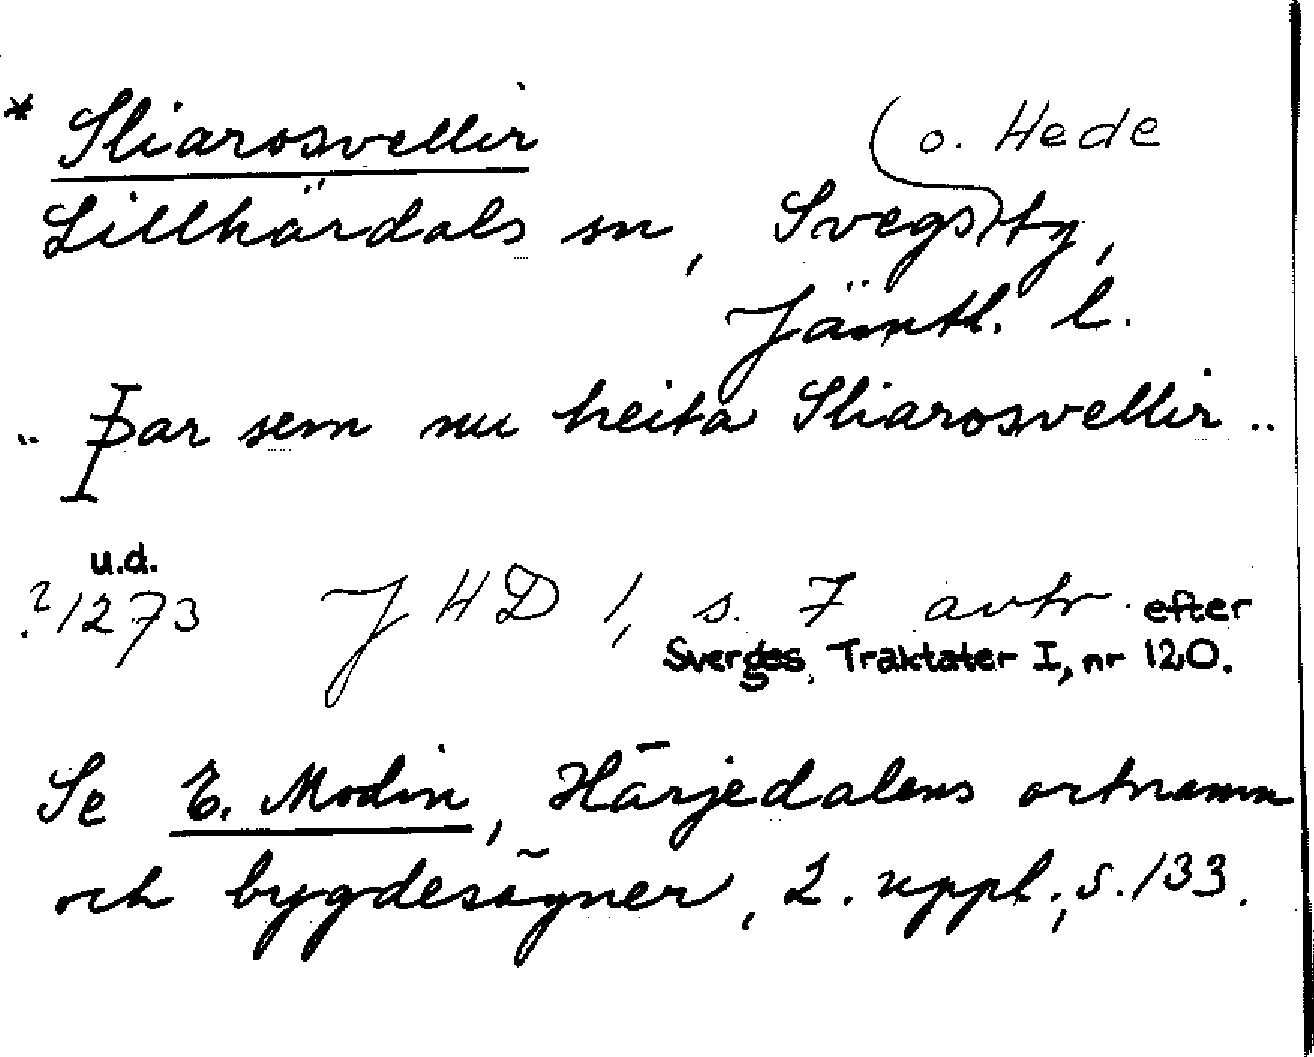 * Sliarosvellir
Lillhärdals sn, Svegs o. Hede tg,
Jämtl. l.
.. Þar sem nu heita Sliarosvellir ..
u.d.
?1273 JHD 1, s. 7 avtr. efter
Sverges Traktater I, nr 120.
Se E. Modin, Härjedalens ortnamn
och bygdesägner, 2. uppl., s. 133.